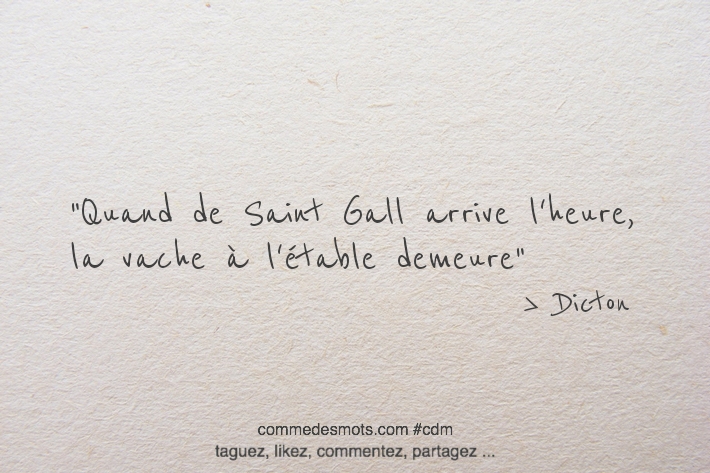 "Quand de Saint Gall arrive l'heure,
la vache à l'étable demeure"
> Dicton
commedesmots.com #cdm
taguez, likez, commentez, partagez ...